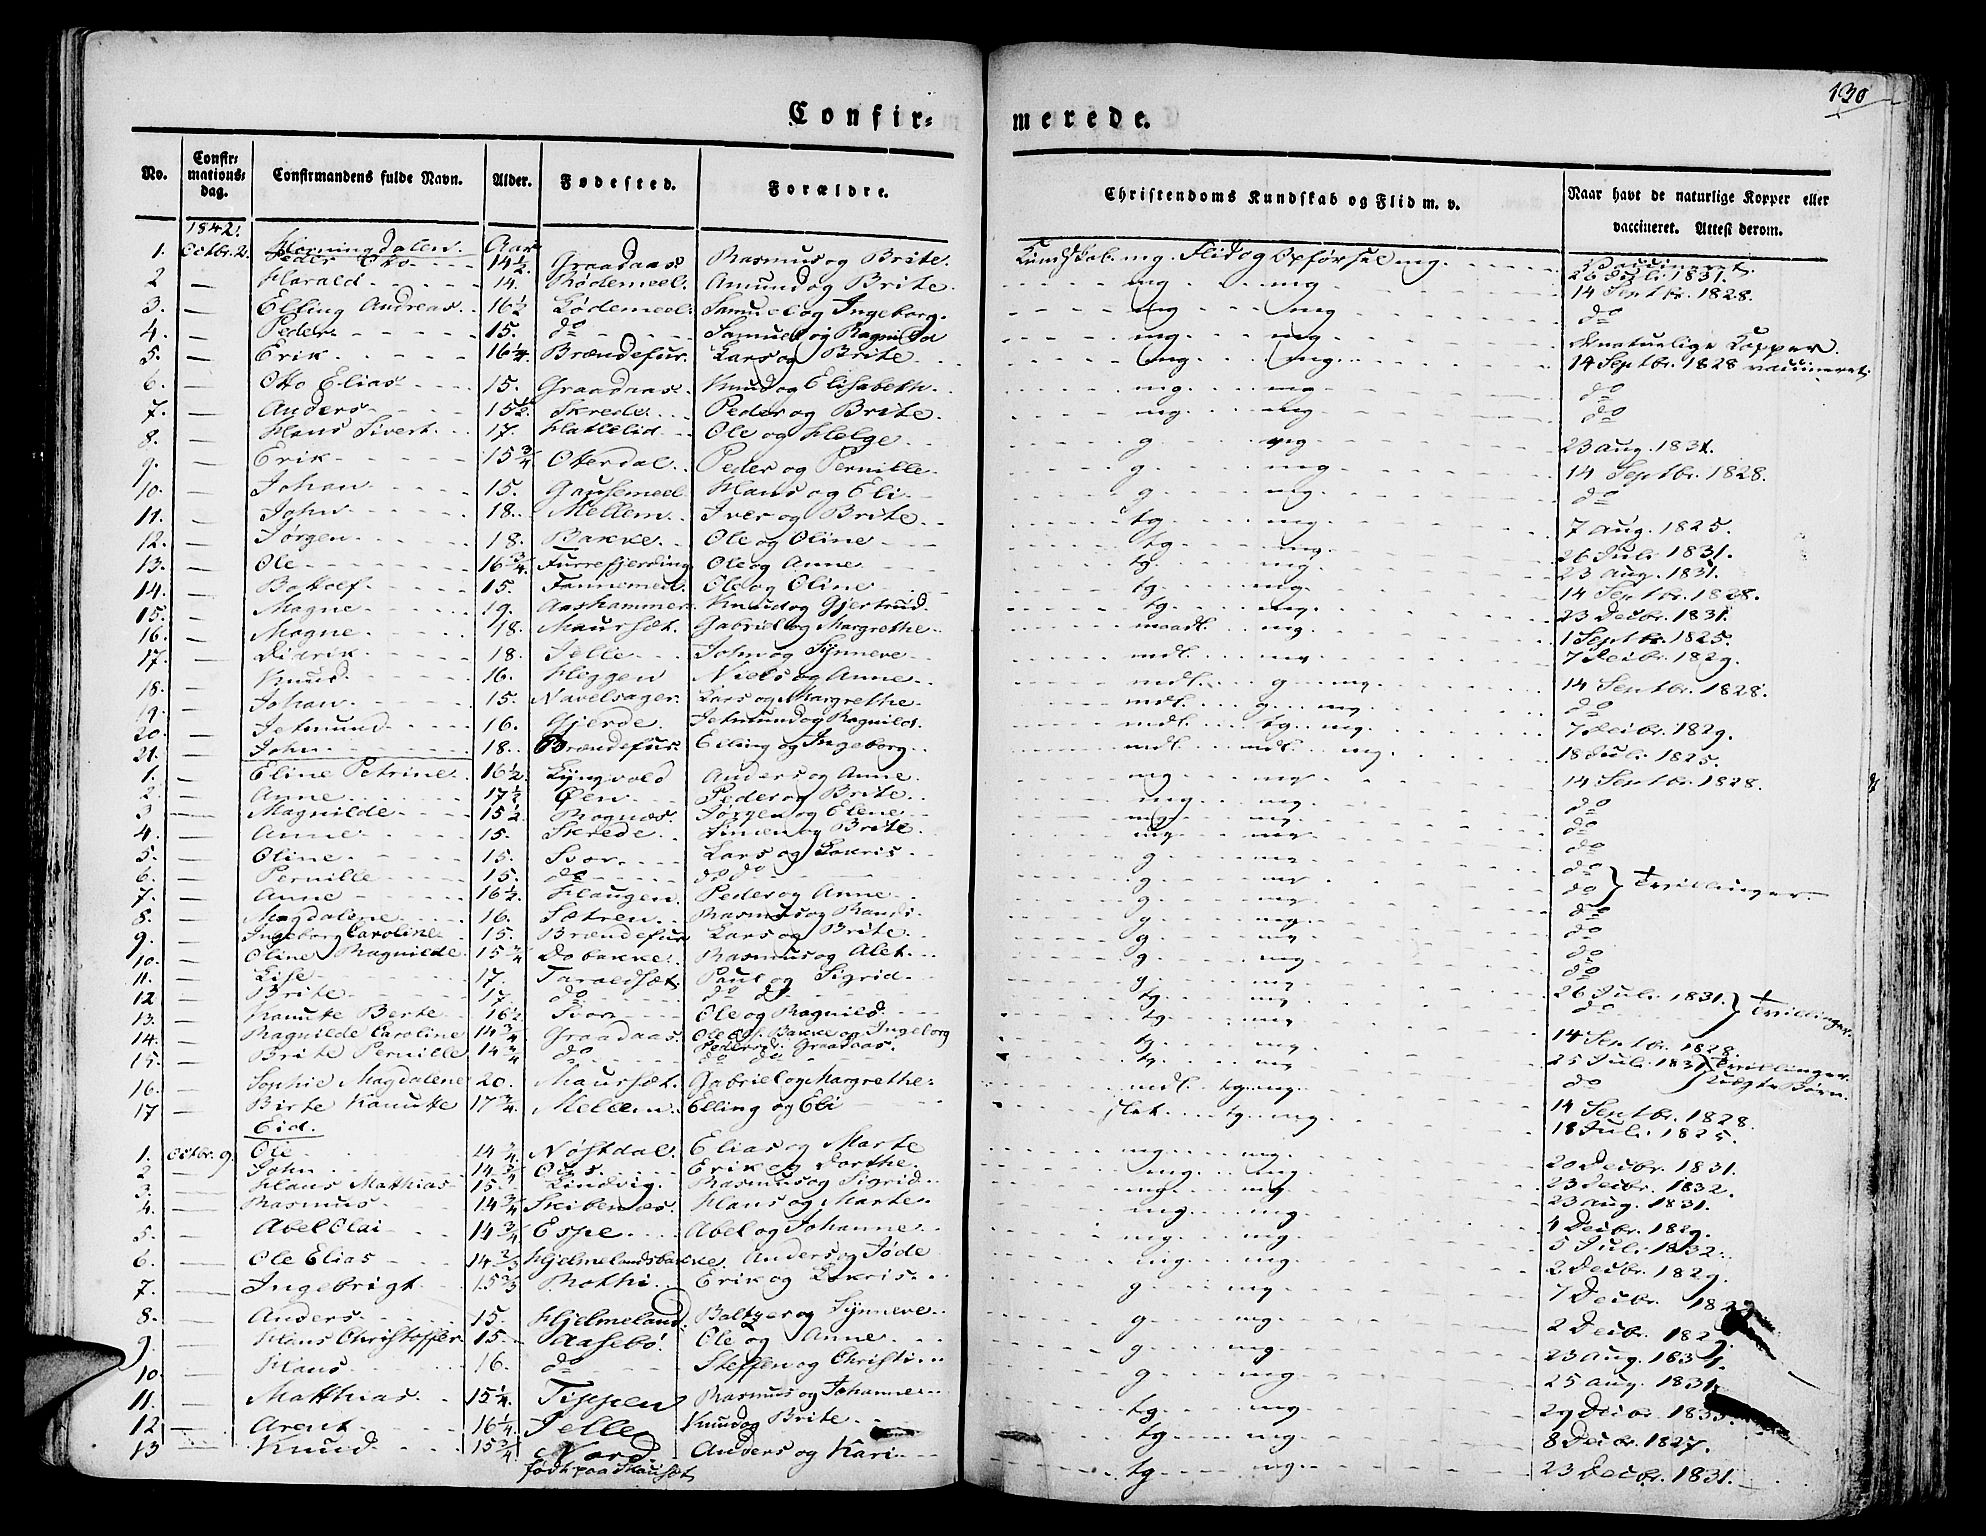 130
Confir- merede.
No. Confirmations-dag. Confirmandens fulde Navn. Alder. Fødested. Forældre. Christendoms Kundskab og Flid m. v. Naar havt de naturlige Kopper eller vaccineret. Attest derom.
1842. Horningdalen. Aar Vaccineret.
1. Octbr. 2. Peder Otto 14 1/2 Graadaas Rasmus og Brite. Kundskab mg. Flid og Opførsel mg. 26 Juli 1831.
2 — Harald 14. Rødemeel Amund og Brite. mg mg. 14 Septbr. 1828.
3. — Elling Andreas 16 1/2 Lødemeel Samuel og Ingeborg. mg mg do
4. — Peder 15. do Samuel og Ragnild mg. mg. de natuelige Kopper.
5. — Erik 16 1/4 Brændefur. Lars og Brite mg. mg. 14 Septbr. 1828 vaccineret
6. — Otto Elias 15. Graadaas Knud og Elisabeth. mg. mg do
7. — Anders 15 1/2 Skrede Peder og Brite. mg. mg. do
8. — Hans Sivert 17. Hatlelid Ole og Helge g mg. 23 Aug. 1831.
9. — Erik 15 3/4 Otterdal Peder og Pernille g. mg. 14 Septbr. 1828.
10. — Johan 15. Gausemeel Hans og Eli g mg. do
11. — John 18. Mellem Iver og Brite tg. mg. 7 Aug. 1825.
12. — Jørgen 18. Bakke Ole og Oline tg. mg. 26 Juli 1831.
13. — Ole 16 3/4 Furrefjerding Ole og Anne tg. mg. 23 Aug. 1831.
14. — Bottolf 15. Tannemeel Ole og Oline tg. mg. 14 Septbr. 1828.
15. — Magne 19. Aashammer Knud og Gjertrud. tg. mg. 23 Decbr. 1831.
16. — Magne 18. Maurset. Gabriel og Margrethe maadl. mg. 1 Septbr. 1825.
17. — Didrik 18. Selle John og Synneve mdl. mg. 7 Decbr. 1829.
18. — Knud 16. Heggen Niels og Anne mdl. g mg. 14 Septbr. 1828.
19. — Johan 15. Navelsager. Lars og Margrethe mdl. g. mg. do
20. — Jetmund 16. Gjerde. Jetmund og Ragnild. mdl. tg. mg. 7 Decbr. 1829.
21. — John 18. Brændefur. Elling og Ingeborg mdl. mdl. mg. 18 Juli 1825.
1. — Eline Petrine 16 1/2 Lyngvold Anders og Anne mg mg 14 Septbr. 1828.
2. — Anne 17 1/2 Øen Peder og Brite mg mg. do
3 — Magnilde 15 1/2 Rognes Jørgen og Elene mg. mg. do
4. — Anne 15. Skrede Simen og Brite mg mg do
5. — Oline 15. Svor Lars og Lokris g mg do
6. — Pernille 15. do do do g. mg do } Tvillinger.
7. — Anne 16 1/2 Haugen Peder og Anne g mg do
8. — Magdalene 16. Sætren Rasmus og Randi g. mg do
9. — Ingeborg Caroline 15. Brændefur Lars og Brite g mg do
10. — Oline Ragnilde 15 3/4 Dobakke Rasmus og Alet g. mg do
11. — Lise 17. Taraldset Paul og Sigrid g. mg. 26 Juli 1831. } Tvillinger.
12 — Brite 17. do do do tg. mg do
13. — Kanutte Berte 16 1/2 Svor Ole og Ragnild tg. mg 14 Septbr. 1828.
14. — Ragnilde Caroline 14 3/4 Graadaas. Ole Bakke og Ingeborg tg. mg. 25 Juli 1831 } Tvillinger.
15. — Brite Pernille 14 3/4 do Pedersd. Graadaas. tg. mg do Uægte Børn.
16. — Sophie Magdalene 20. Maurset. Gabriel og Margrethe mdl. tg. mg. 14 Septbr. 1828.
17 — Birte Kanutte 17 3/4 Mellem Elling og Eli slet. tg. mg. 18 Juli 1825.
Eid.
1. Octbr. 9. Ole 14 3/4 Nøstdal Elias og Marte mg. mg. 20 Decbr. 1831.
2 — John 14 3/4 Erik og Dorthe. mg. mg. 23 Decbr. 1832.
3. — Hans Mathias 15. Lindvig. Rasmus og Sigrid mg. mg. 23 Aug. 1831.
4. — Rasmus 14 3/4 Skibenes Hans og Marte mg. mg. 4 Decbr. 1829.
5. — Abel Olai 14 3/4 Espe Abel og Johanne mg. mg. 5 Juli 1832.
6. — Ole Elias 14 2/3 Hjelmelandsbakke Anders og Jøde mg. mg. 2 Decbr. 1829.
7. — Ingebrigt 15 2/3 Rothi Erik og Lokris g mg 7 Decbr. 182
8. — Anders 15. Hjelmeland. Baltzer og Synneve g. mg. 2 Decbr. 1829.
9. — Hans Christoffer 15. Aasebø. Ole og Anne g. mg. 23 Aug. 1831.
10. — Hans 16. do Steffen og Christi g mg. 25 Aug. 1831.
11. — Matthias 15 1/4 Tippen Rasmus og Johanne tg. mg. 29 Decbr. 1833.
12 — Arent 16 1/4 Selle Knud og Brite tg mg. 8 Decbr. 1827.
13 — Knud 15 3/4 Nord Anders og Kari tg. mg. 23 Decbr. 1831.
født paa Hauset